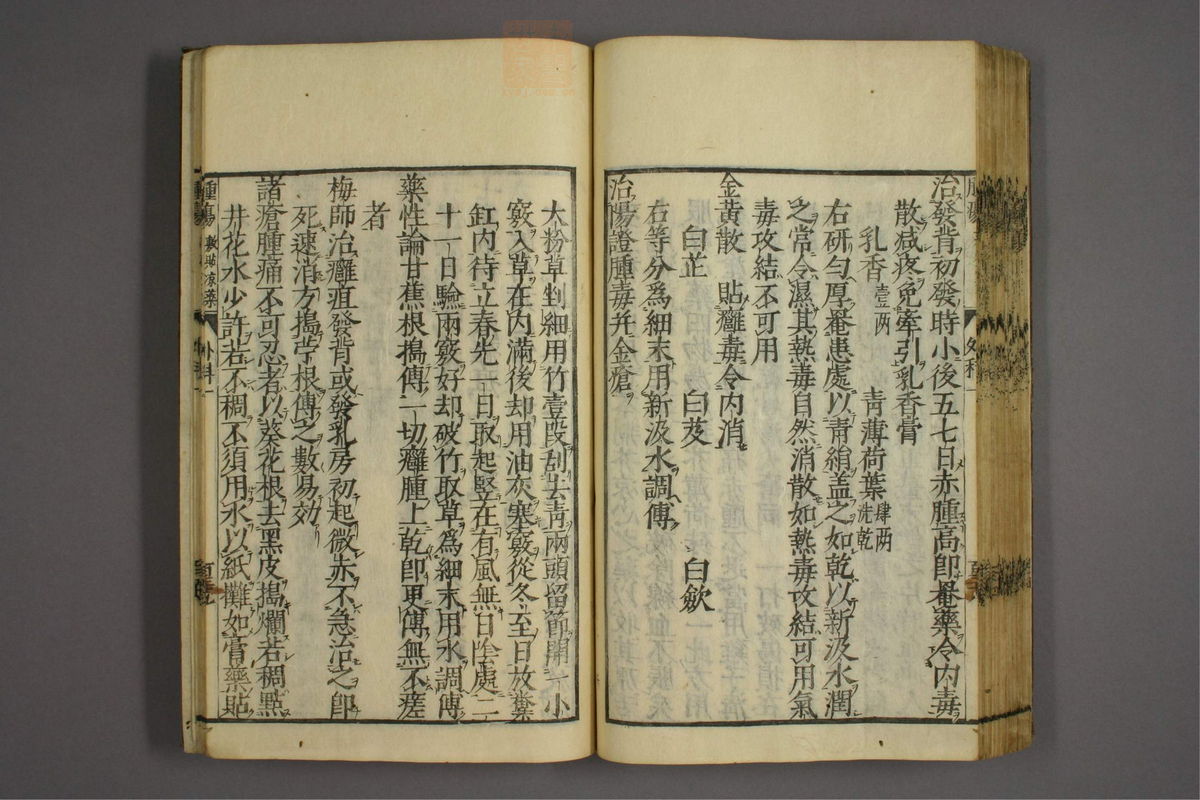 治發背初發時小後五七日赤腫高卽罨藥令內毒
散減疼免牽引乳香膏
乳香壹两　青薄荷葉肆两洗乾
右研勻厚罨患處以靑絹盖之如乾以新汲水潤
之常令濕其熱毒自然消散如熱毒攻結可用氣
毒攻結不可用
金黃散　貼癰毒令內消
白芷　白芨　白歛
右等分爲細末用新汲水調傅
治惕證腫毒并金瘡
大粉草剉細用竹壹段刮去青兩頭留節開一小
竅入草在內滿後却用油灰塞竅從冬至日放糞
缸內待立春先一日取起竪在有風無日陰處二
十一日驗雨竅好却破竹取草爲細末用水調傅
藥性論甘蕉根搗傅一切癰腫上乾卽更傅無不瘥
者
梅師治癰疽發背或發乳房初起微赤不急治之卽
死速消方搗苧根傅之數易効
諸瘡腫痛不可忍者以葵花根去黑皮搗爛若稠點
井花水少許若不稠不須用水以紙攤如膏藥貼
腫瘍　敷貼凉藥　外科一